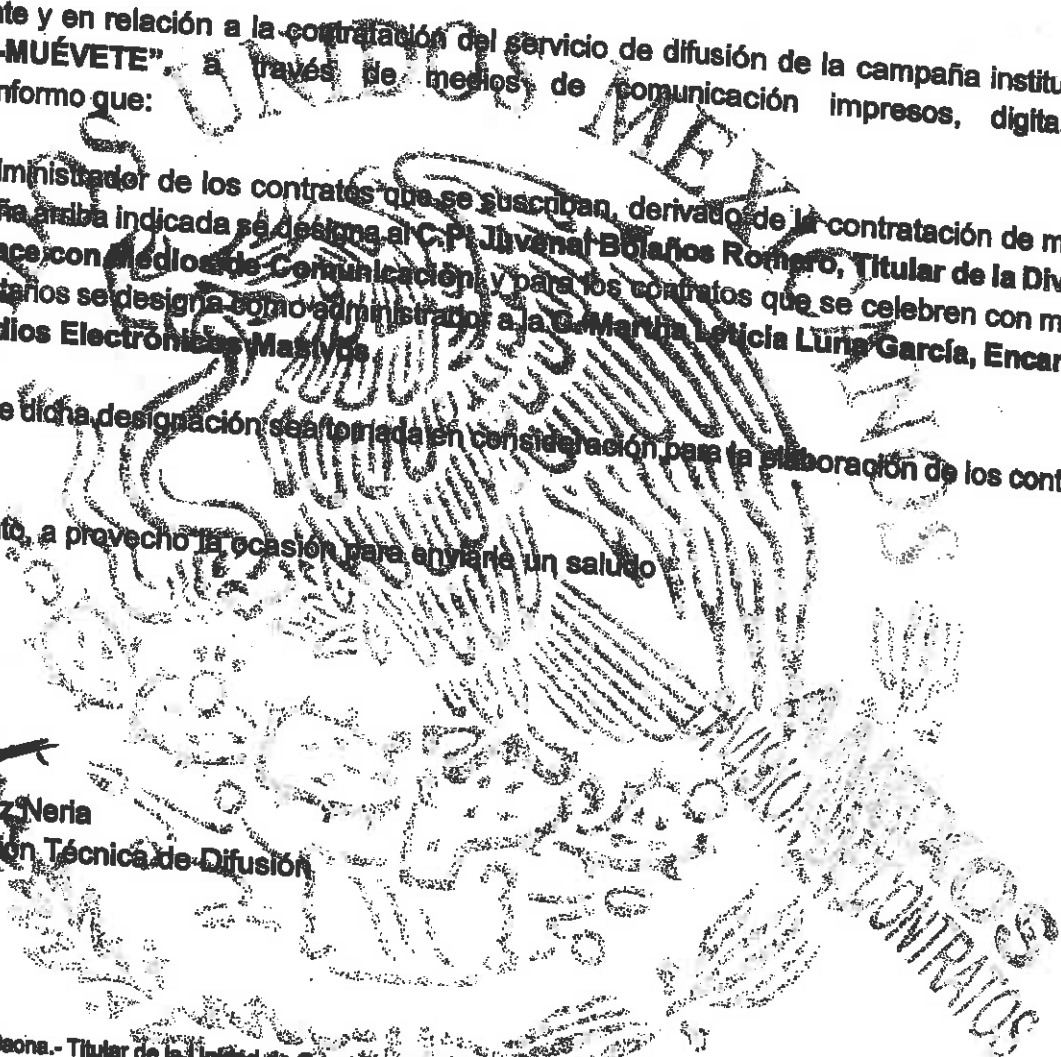 te y en relación a la contratación del servicio de difusión de la campaña institu
-MUÉVETE", a través de medios de comunicación impresos, digita
nformo que:
ministrador de los contratos que se suscriban, derivado de la contratación de m
ña arriba indicada se designa al C.P. Juvenal Bolaños Romero, Titular de la Div
ace con Medios de Comunicación, y para los contratos que se celebren con m
se designa como administrador a la C. Martha Leticia Luna García, Encar
dios Electrónicos Masivos.
e dicha designación sea tomada en consideración para la elaboración de los cont
to, a provecho la ocasión para enviarle un saludo
z Neria
ón Técnica de Difusión
UNIDOS MEXICANOS
CONTRATOS
.- Titular de la